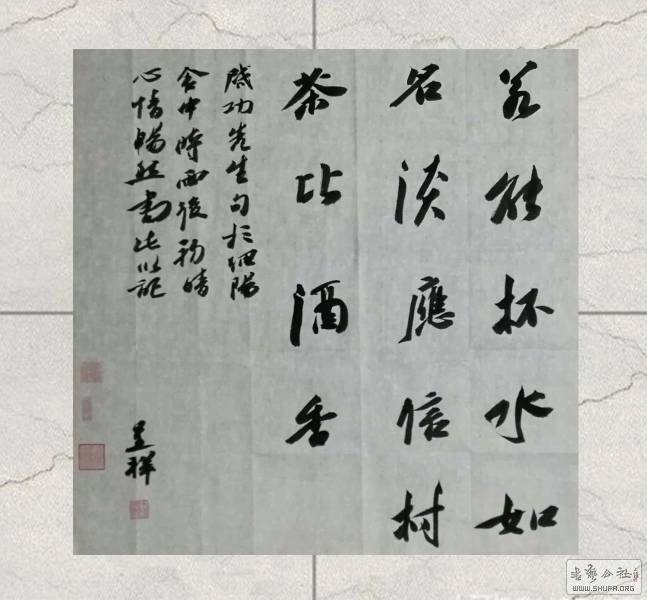 若能杯水如
名淡應信村
茶比酒香
啟功先生句於泗陽
舍中時雨後初晴
心情暢然書此以記
呈祥
WWW.SHUFA.ORG